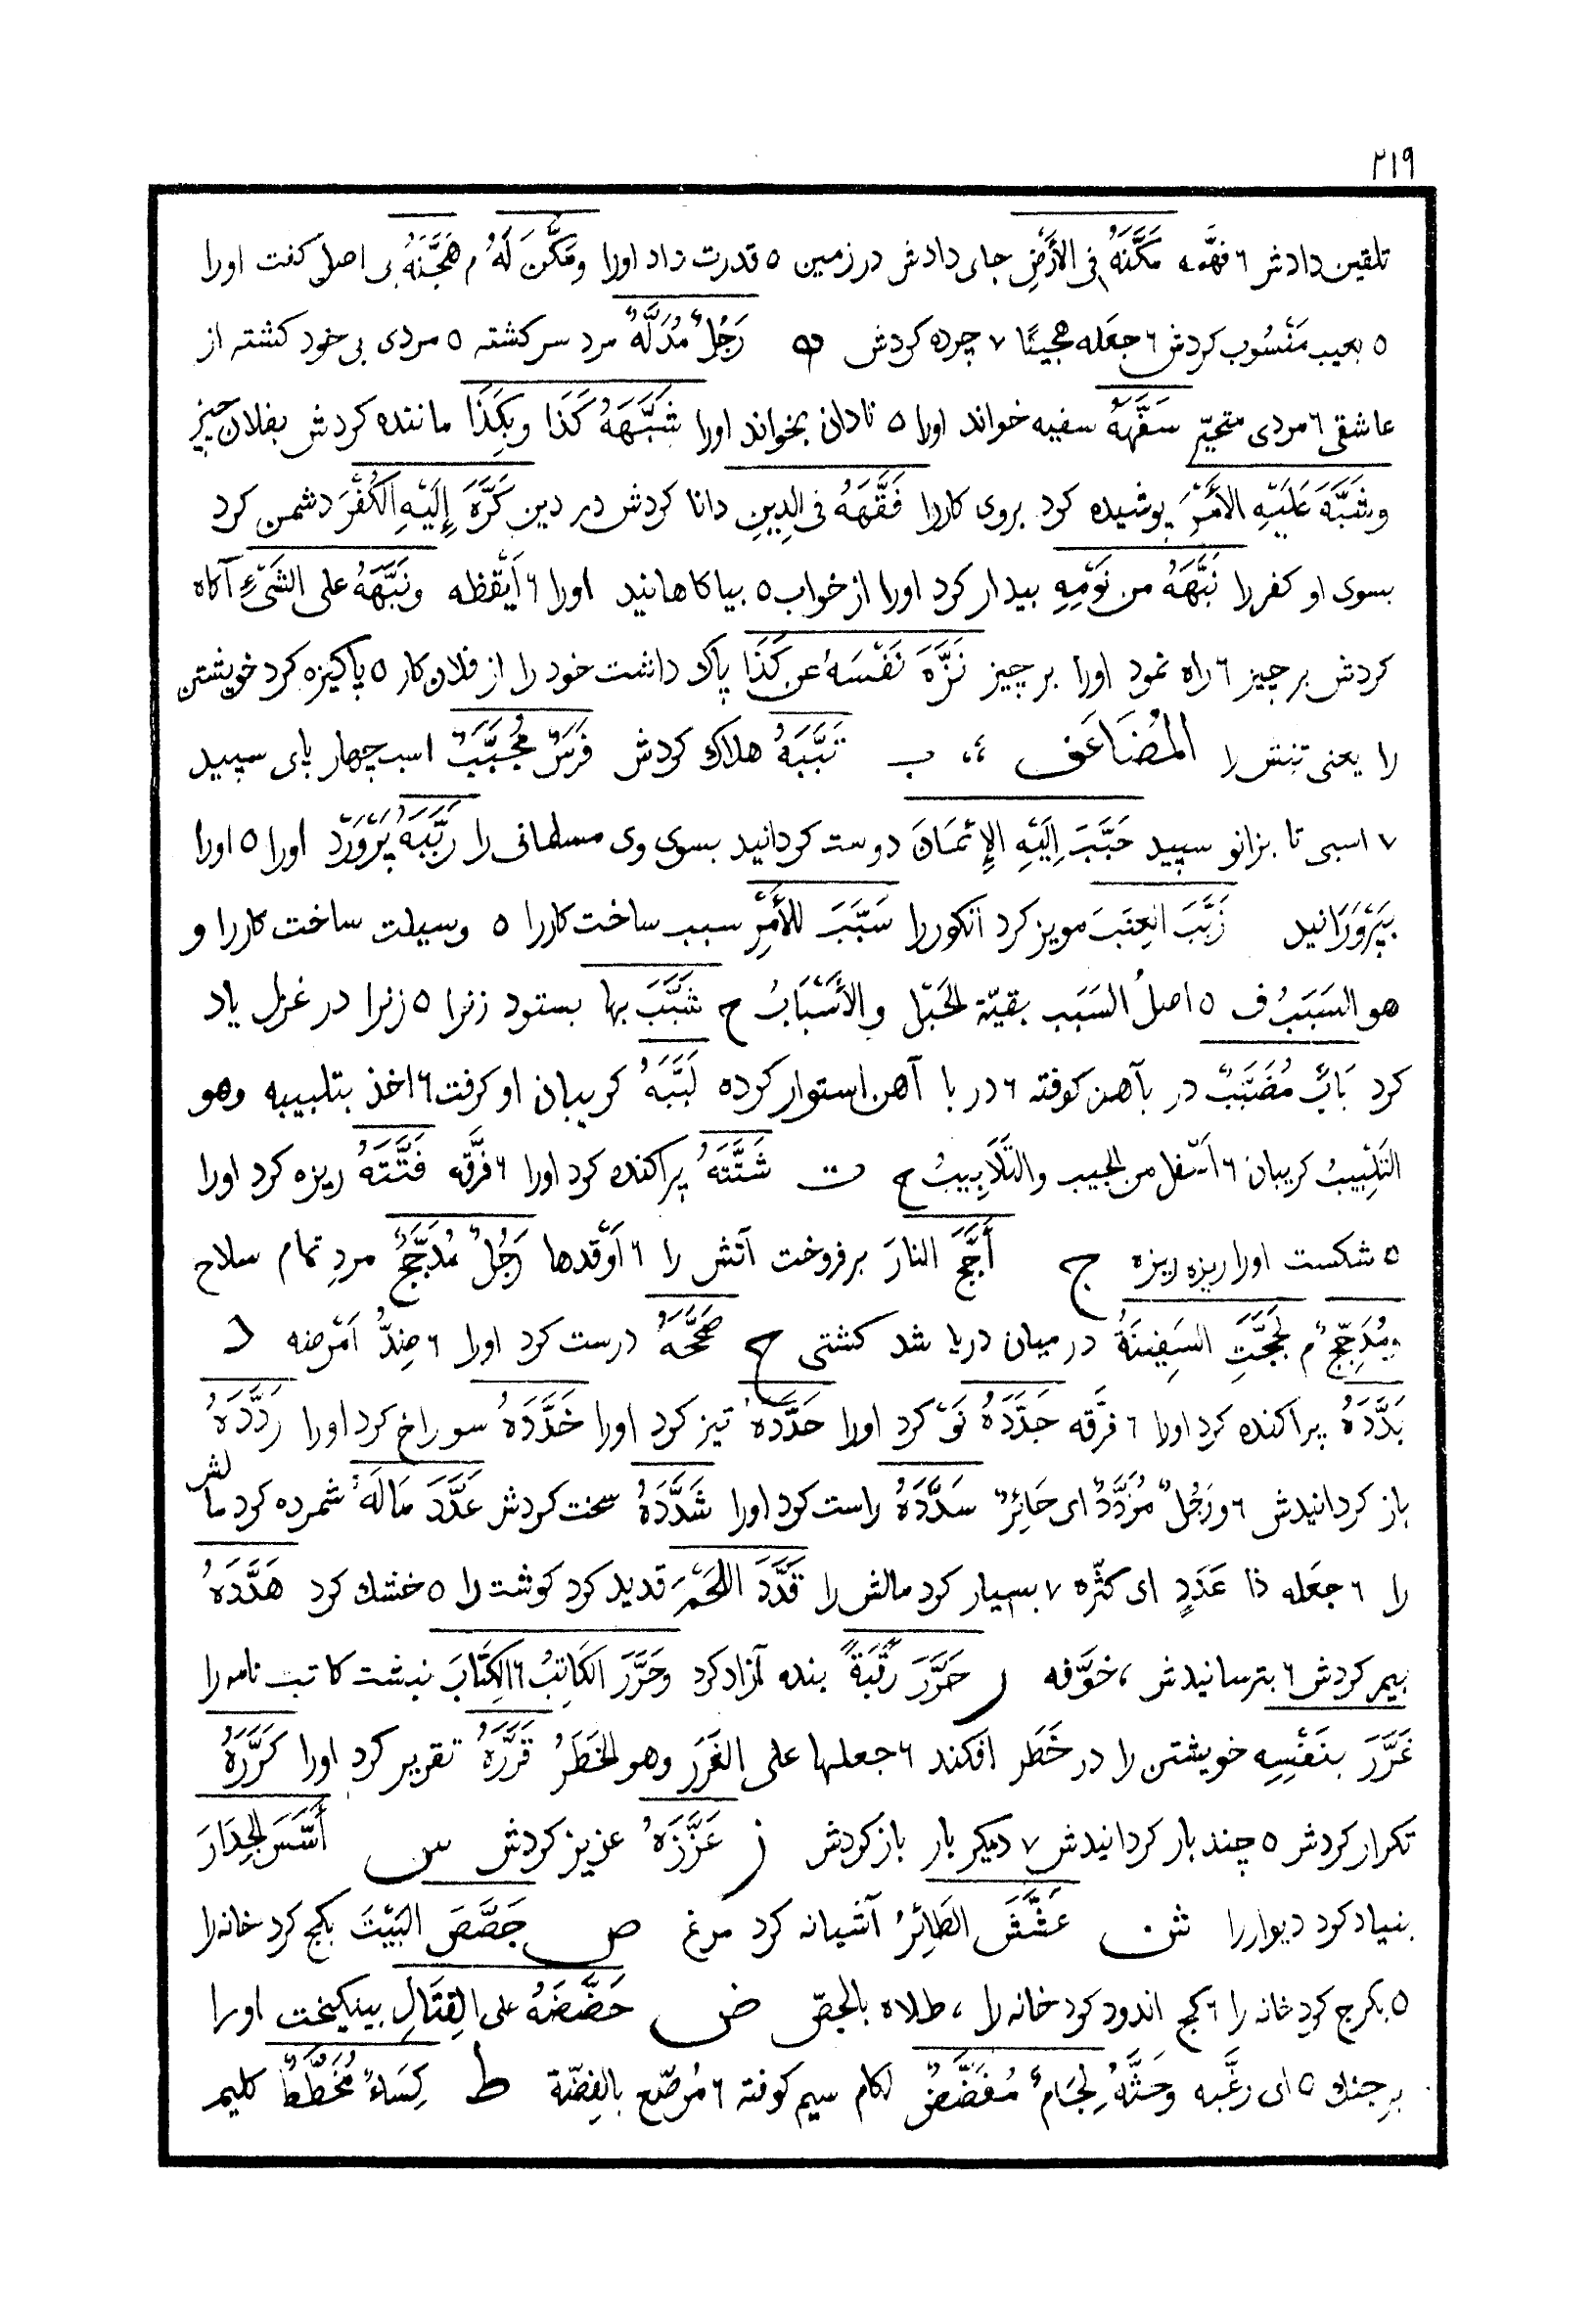 ٢١٩
تلقین دادش ٦ فهَّمه مَكَّنَهُ فِى الأَرْضِ جای دادش در زمین ٥ قدرت داد اورا ومَكَّنَ لَهُ م هَجَّنَهُ بی اصل کفت اورا
٥ بعیب مَنْسُوب کردش ٦ جعَله هجينًا ٧ چرده کردش ه رَجُلٌ مُدَلَّهٌ مرد سرکشته ٥ مردی بی خود کشته از
عاشقی ٦ مردی متحیّر سَفَّهَهُ سفیه خواند اورا ٥ نادان بخواند اورا شَبَّهَهُ كَذَا وبِكَذَا ماننده کردش بفلان چیز
وشَبَّهَ عَلَيْهِ الأَمْرَ پوشیده کرد بروی کاررا فَقَّهَهُ فى الدِينِ دانا کردش در دین كَرَّهَ إِلَيْهِ الكُفْرَ دشمن کرد
بسوی او کفررا نَبَّهَهُ من نَوْمِهِ بیدار کرد اورا از خواب ٥ بیاکاهانید اورا ٦ أَيْقظه ونَبَّهَهُ على الشَىْءِ آکاه
کردش بر چیز ٦ راه نمود اورا بر چیز نَزَّهَ نَفْسَهُ عن كَذَا پاک داشت خود را از فلان کار ٥ پاکیزه کرد خویشتن
را یعنی تنش را المُضَاعَف ب تَبَّبَهُ هلاک کردش فَرَسٌ مُجَبَّبٌ اسب چهار پای سپید
٧ اسبی تا بزانو سپید حَبَّبَ إِلَيْهِ الإِيْمَانَ دوست کردانید بسوی وی مسلمانی را رَبَّبَهُ پَرْوَرْد اورا ٥ اورا
بپَرْوَرَانید زَبَّبَ العِنَبَ مویز کرد انکوررا سَبَّبَ للأَمْرِ سبب ساخت کاررا ٥ وسیلت ساخت کاررا و
هو السَبَبُ ف ٥ اصلُ السَبَب بقيّة الحَبْل والأَسْبَابُ ج شَبَّبَ بها بستود زنرا ٥ زنرا در غزل یاد
کرد بَابٌ مُضَبَّبٌ در بآهن کوفته ٦ در با آهن استوار کرده لَبَّبَهُ کریبان او کرفت ٦ اخذ بتلبيبه وهو
التَلْبِيبُ کریبان ٦ أسْفل من الجيب والتَلَابِيبُ ج ت شَتَّتَهُ پراکنده کرد اورا ٦ فرَّقه فَتَّتَهُ ریزه کرد اورا
٥ شکست اورا ریزه ریزه ج أَجَّجَ النارَ برفروخت آتش را ٦ أوْقدها رَجُلٌ مُدَجَّجٌ مردِ تمام سلاح
ومُدَجِّجٌ م لَجَّجَتِ السَفِينَةُ در میان دریا شد کشتی ح صَحَّحَهُ درست کرد اورا ٦ ضِدُّ أمْرضه د
بَدَّدَهُ پراکنده کرد اورا ٦ فرَّقه جَدَّدَهُ نَوْ کرد اورا حَدَّدَهُ تیز کرد اورا خَدَّدَهُ سوراخ کرد اورا رَدَّدَهُ
باز کردانیدش ٦ ورَجُلٌ مُرَدَّدٌ اى حَائِرٌ سَدَّدَهُ راست کرد اورا شَدَّدَهُ سخت کردش عَدَّدَ مَالَهُ شمرده کرد مالش
را ٦ جعَله ذا عَدَدٍ اى كثّره ٧ بسیار کرد مالش را قَدَّدَ اللَحْمَ قدید کرد کوشت را ٥ خشک کرد هَدَّدَهُ
بیم کردش ٦ بترسانیدش ، خوَّفه ر حَرَّرَ رَقَبَةً بنده آزاد کرد وحَرَّرَ الكَاتِبُ ٦ الكِتَابَ نبشت کاتب نامه را
غَرَّرَ بنَفْسِهِ خویشتن را در خَطَر افکند ٦ جعلها على الغَرَر وهو الخَطَرُ قَرَّرَهُ تقریر کرد اورا كَرَّرَهُ
تکرار کردش ٥ چند بار کردانیدش ٧ دیکر بار باز کردش ز عَزَّزَهُ عزیز کردش س أَسَّسَ الجِدَارَ
بنیاد کرد دیواررا ش عَشَّشَ الطَائِرُ آشیانه کرد مرغ ص جَصَّصَ البَيْتَ بکج کرد خانه را
٥ بکرج کرد خانه را ٦ کج اندود کرد خانه را ، طلاه بالجصّ ض حَضَّضَهُ على القِتَالِ بینکیخت اورا
بر جنک ٥ اى رغَّبه وحَثَّهُ لِجَامٌ مُفَضَّضٌ لکام سیم کوفته ٦ مُرصّع بالفِضّة ط كِسَاءٌ مُخَطَّطٌ کلیم